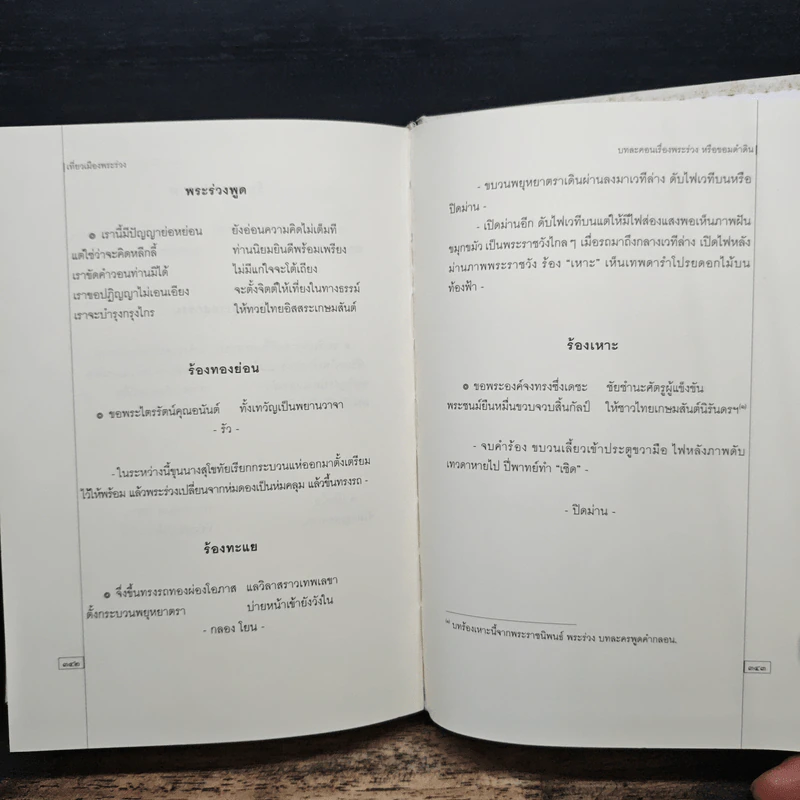 เที่ยวเมืองพระร่วง
พระร่วงพูด
๏ เรานี้มีปัญญาย่อหย่อน ยังอ่อนความคิดไม่เต็มที่
แต่ใช่ว่าจะคิดหลีกลี้ ท่านนิยมยินดีพร้อมเพรียง
เราขัดคำวอนท่านมิได้ ไม่มีแก่ใจจะโต้เถียง
เราขอปฏิญญาไม่เอนเอียง จะตั้งจิตต์ให้เที่ยงในทางธรรม์
เราจะบำรุงกรุงไกร ให้ทวยไทยอิสสระเกษมสันต์
ร้องทองย่อน
๏ ขอพระไตรรัตน์คุณอนันต์ ทั้งเทวัญเป็นพยานวาจา
- รัว -
- ในระหว่างนี้ขุนนางสุโขทัยเรียกกระบวนแห่ออกมาตั้งเตรียม
ไว้ให้พร้อม แล้วพระร่วงเปลี่ยนจากห่มดองเป็นห่มคลุม แล้วขึ้นทรงรถ -
ร้องทะแย
๏ จึ่งขึ้นทรงรถทองผ่องโอภาส แลวิลาสราวเทพเลขา
ตั้งกระบวนพยุหยาตรา บ่ายหน้าเข้ายังวังใน
- กลอง โยน -
๓๔๒
บทละคอนเรื่องพระร่วง หรือขอมดำดิน
- ขบวนพยุหยาตราเดินผ่านลงมาเวทีล่าง ดับไฟเวทีบนหรือ
ปิดม่าน -
- เปิดม่านอีก ดับไฟเวทีบนแต่ให้มีไฟส่องแสงพอเห็นภาพฝัน
ขมุกขมัว เป็นพระราชวังไกลๆ เมื่อรถมาถึงกลางเวทีล่าง เปิดไฟหลัง
ม่านภาพพระราชวัง ร้อง "เหาะ" เห็นเทพดารำโปรยดอกไม้บน
ท้องฟ้า -
ร้องเหาะ
๏ ขอพระองค์จงทรงซึ่งเดชะ ชัยชำนะศัตรูผู้แข็งขัน
พระชนม์ยืนหมื่นขวบจวบสิ้นกัลป์ ให้ชาวไทยเกษมสันต์นิรันดรฯ
- จบคำร้อง ขบวนเลี้ยวเข้าประตูขวามือ ไฟหลังภาพดับ
เทวดาหายไป ปี่พาทย์ทำ "เชิด" -
- ปิดม่าน -
บทร้องเหาะนี้จากพระราชนิพนธ์ พระร่วง บทละครพูดคำกลอน.
๓๔๓